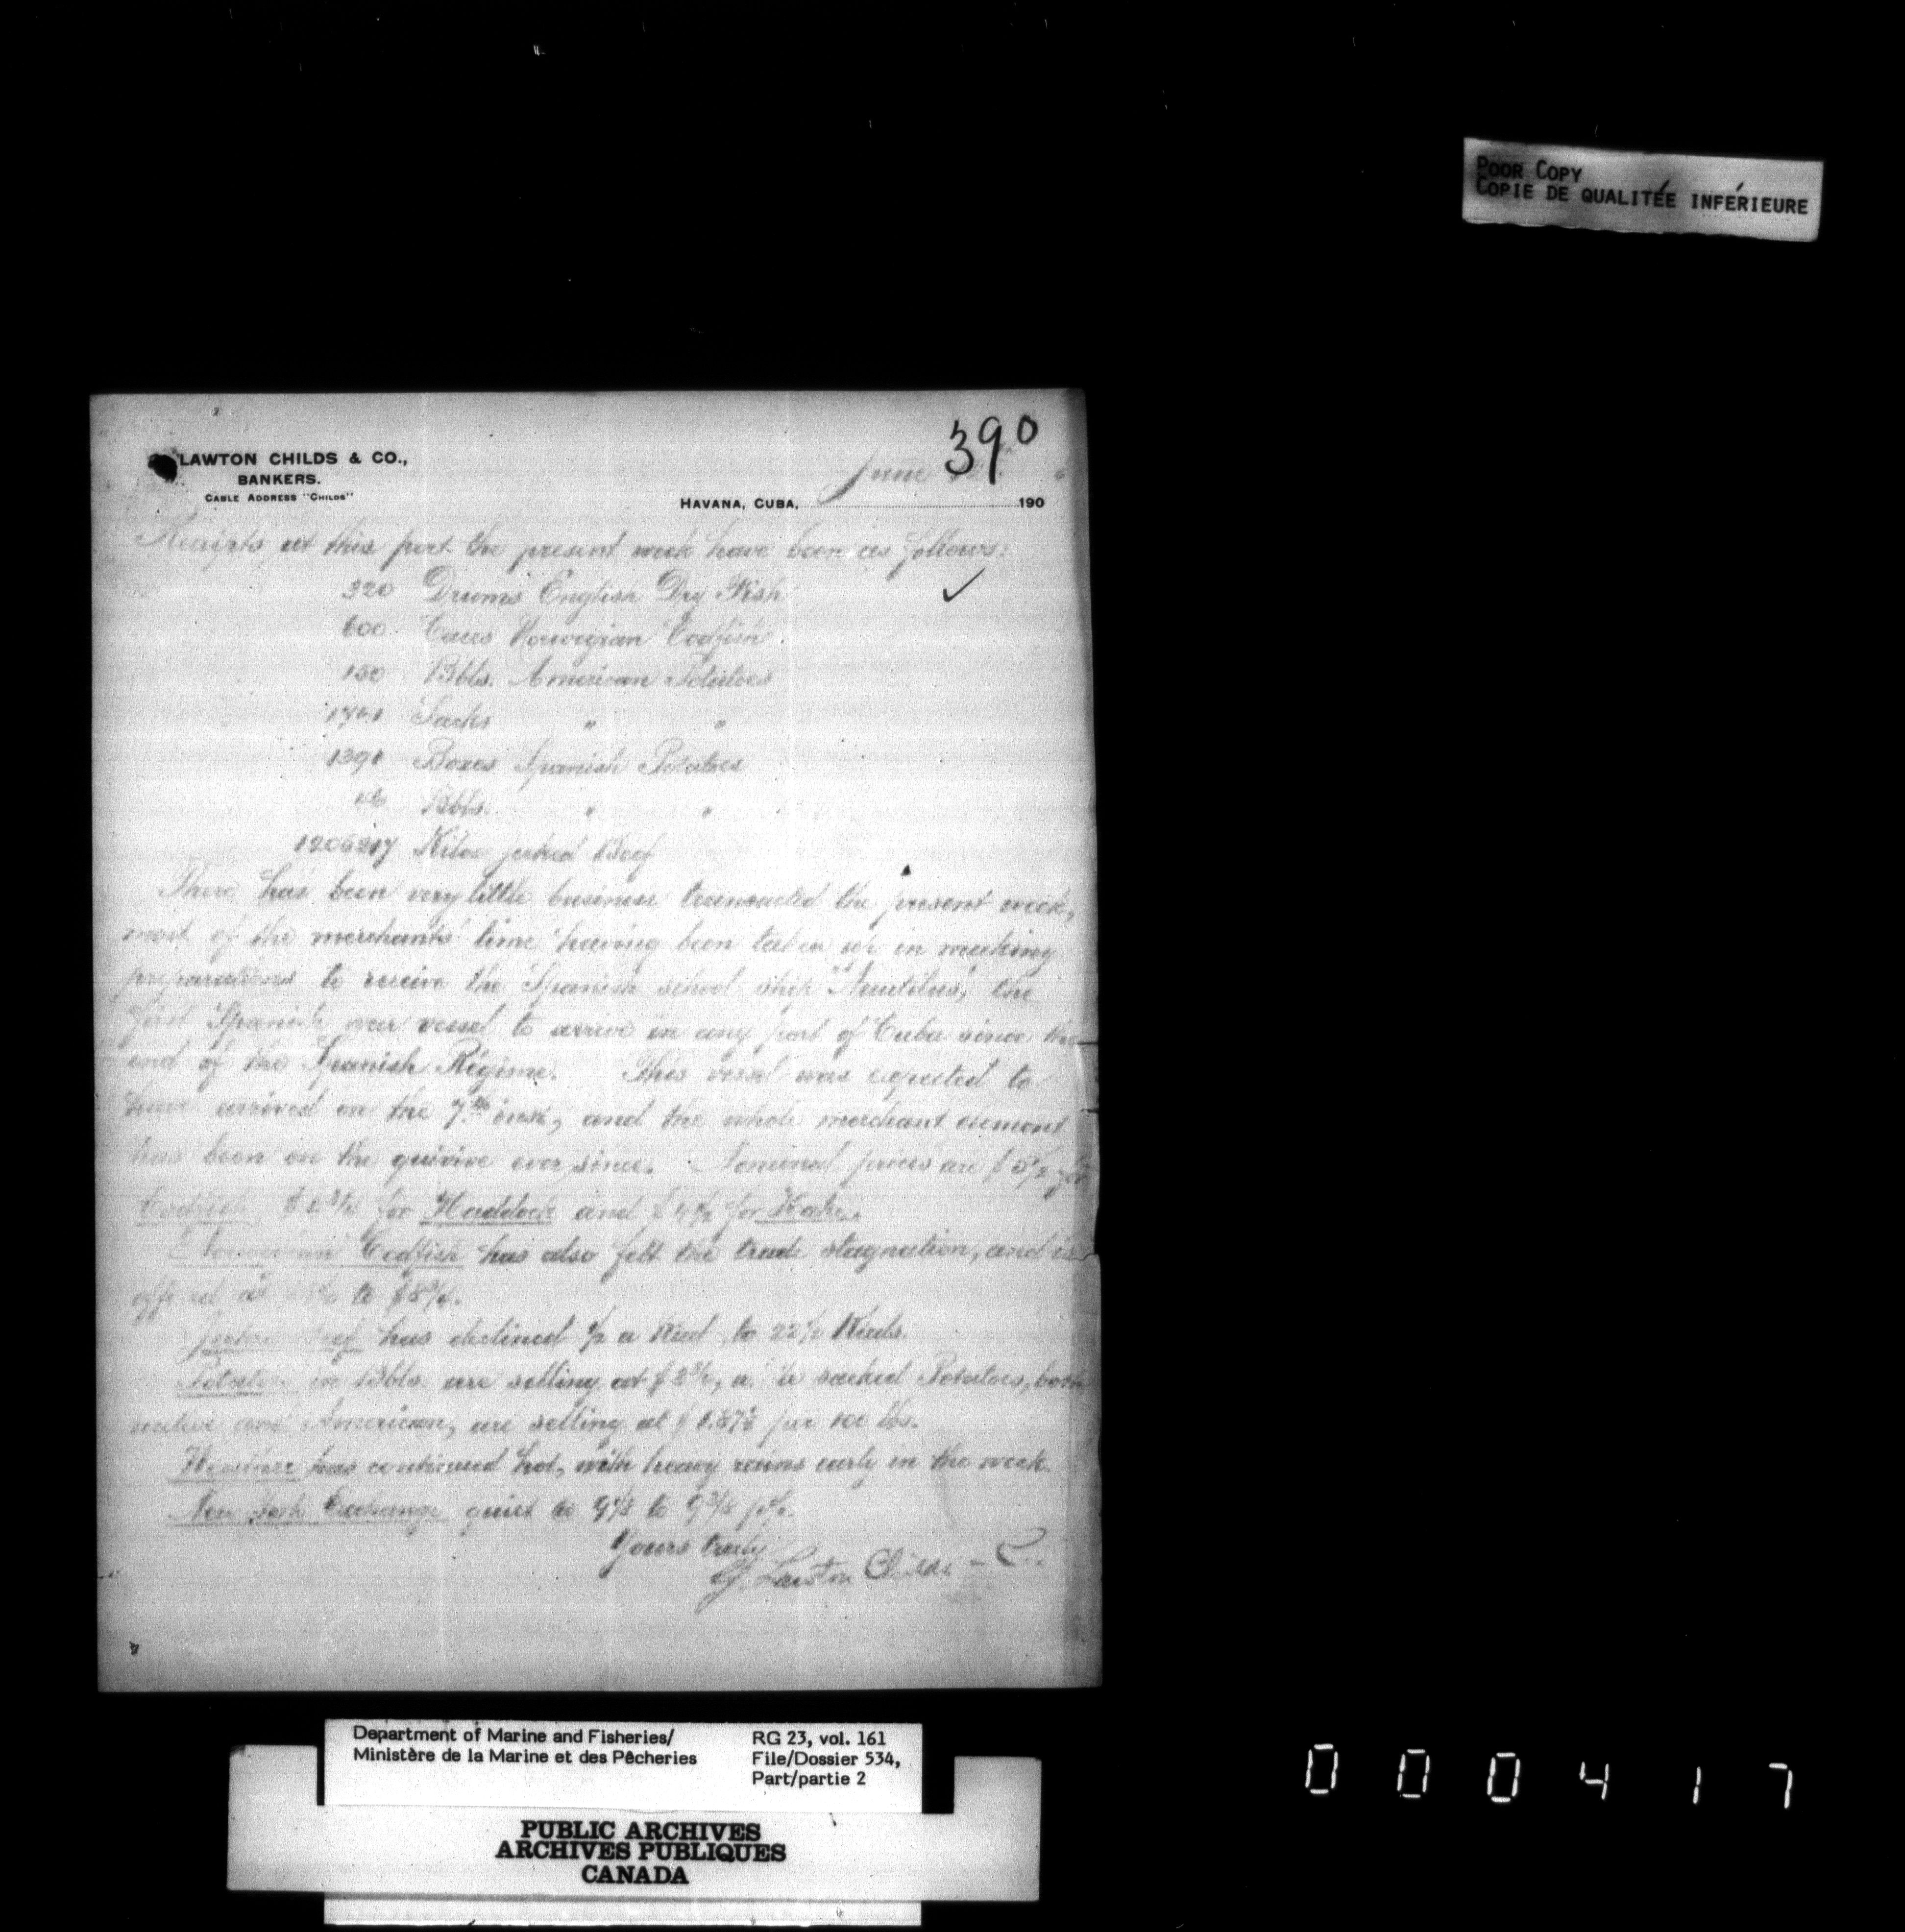 POOR COPY
COPIE DE QUALITÉE INFÉRIEURE
390
LAWTON CHILDS & CO.,
BANKERS.
CABLE ADDRESS "CHILDS"
June
HAVANA, CUBA, 190
Receipts at this port the present week have been as follows:
320 Drums English Dry Fish
600 Cases Norwegian Codfish.
150 Bbls. American Potatoes
Sacks " "
1391 Boxes Spanish Potatoes
Bbls. " "
Kilos jerked Beef
There has been very little business transacted the present week,
most of the merchants' time having been taken up in making
preparations to receive the Spanish school ship "Nautilus", the
first Spanish war vessel to arrive in any port of Cuba since the
end of the Spanish Régime. This vessel was expected to
have arrived on the 7th inst, and the whole merchant element
has been on the quivive ever since. Nominal prices are $5½ for
Codfish, for Haddock and $4½ for Hake.
Norwegian Codfish has also felt the trade stagnation, and is
to $8¾.
Jerked Beef has declined ½ a Rial to 22½ Rials.
Potatoes in Bbls. are selling at sacked Potatoes, both
native and American, are selling at per 100 lbs.
Weather has continued hot, with heavy rains early in the week.
New York Exchange quiet to
Yours truly
Lawton Childs - Co.
Department of Marine and Fisheries/
Ministère de la Marine et des Pêcheries
RG 23, vol. 161
File/Dossier 534,
Part/partie 2
PUBLIC ARCHIVES
ARCHIVES PUBLIQUES
CANADA
000417